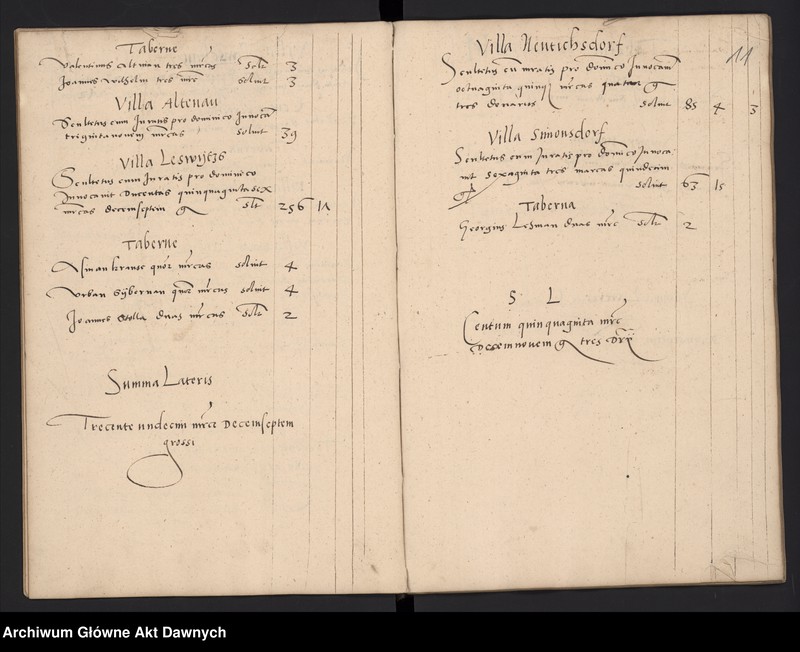 Taberne
Valentinus Altman tres mrcas solt 3
Joannes Wilhelm tres mrc soluit 3
Villa Altenau
Scultetus cum Juratis pro dominico Innocauit
trigintanouem mrcas soluit 39
Villa Leswÿtz
Scultetus cum Juratis pro dominico
Innocauit Ducentas quinquagintasex
mrcas decemseptem g solt 256 17
Taberne
Asman krause quor mrcas soluit 4
Vrban Sÿbernan quor mrcas soluit 4
Joannes Stolla duas mrcas solt 2
Summa Lateris
Trecente undecim mrce Decemseptem
grossi
11
Villa Neutichsdorf
Scultetus cu iuratis pro domico Innocauit
octuaginta quinq mrcas quatuor g
tres denarios soluit 85 4 3
Villa Simonsdorf
Scultetus cum Juratis pro domico Innoca
uit sexaginta tres marcas quindecim
g soluit 63 15
Taberna
Georgius Lesman duas mrc solt 2
S L
Centum quinquaginta mrce
Decemnouem g tres Drii
Archiwum Główne Akt Dawnych